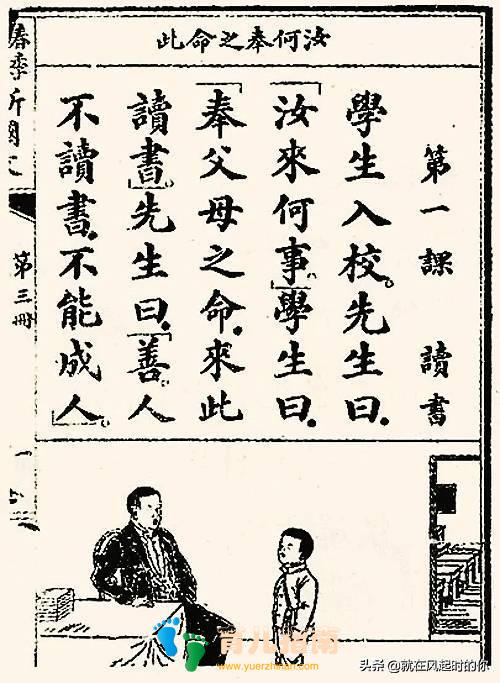 汝何奉之命此
第一課 讀書
學生入校。先生曰.
「汝來何事。」學生曰.
「奉父母之命.來此
讀書。」先生曰.「善。人
不讀書.不能成人。」
第三冊
育儿指南
www.yuerzhinan.com
头条 @就在风起时的你